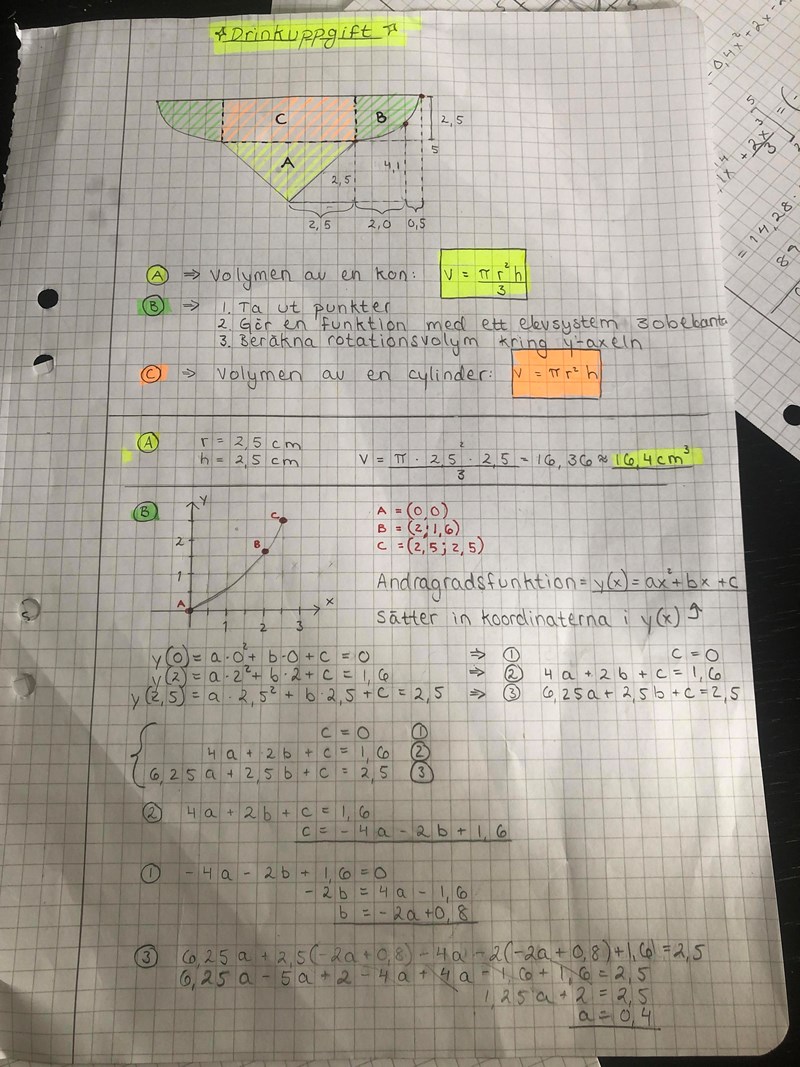 ☆Drinkuppgift☆
C
B
2,5
A
5
2,5
4,1
2,5
2,0
0,5
A ⇒ Volymen av en kon: V = πr²h/3
B ⇒ 1. Ta ut punkter
2. Gör en funktion med ett ekvsystem 3obekant
3. Beräkna rotationsvolym kring y-axeln
C ⇒ Volymen av en cylinder: V = πr²h
A r = 2,5 cm
h = 2,5 cm
V = π · 2,5² · 2,5 / 3 = 16,36 ≈ 16,4cm³
B
y
C
2
B
1
A
x
1 2 3
A = (0,0)
B = (2;1,6)
C = (2,5;2,5)
Andragradsfunktion = y(x) = ax²+bx+c
Sätter in koordinaterna i y(x) ↑
y(0) = a·0² + b·0 + c = 0 ⇒ ① c = 0
y(2) = a·2² + b·2 + c = 1,6 ⇒ ② 4a + 2b + c = 1,6
y(2,5) = a·2,5² + b·2,5 + c = 2,5 ⇒ ③ 6,25a + 2,5b + c = 2,5
c = 0 ①
4a + 2b + c = 1,6 ②
6,25a + 2,5b + c = 2,5 ③
② 4a + 2b + c = 1,6
c = -4a - 2b + 1,6
① -4a - 2b + 1,6 = 0
-2b = 4a - 1,6
b = -2a+0,8
③ 6,25a + 2,5(-2a+0,8) - 4a - 2(-2a+0,8)+1,6 = 2,5
6,25a - 5a + 2 - 4a + 4a - 1,6 + 1,6 = 2,5
1,25a + 2 = 2,5
a = 0,4